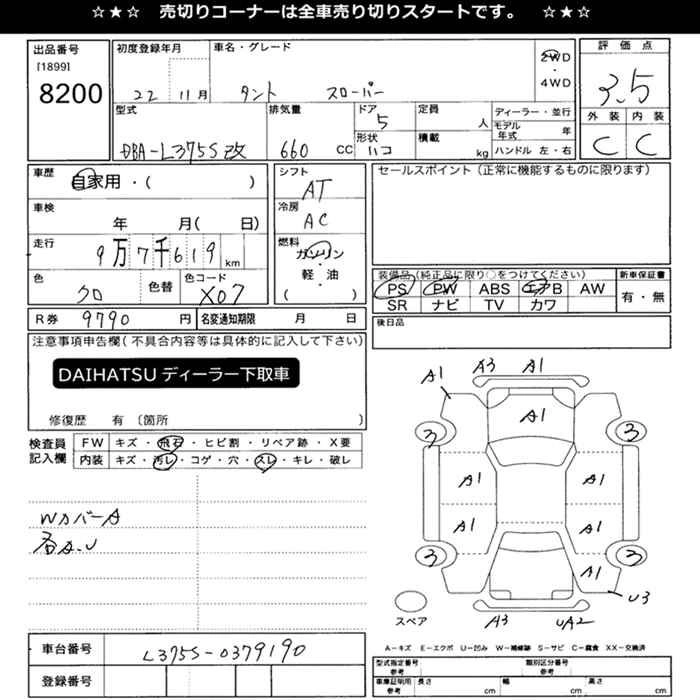 ☆★☆ 売切りコーナーは全車売り切りスタートです。 ☆★☆
出品番号
[1899]
8200
初度登録年月
22 11月
車名・グレード
タント スローパー
2WD
・
4WD
評価点
3.5
外装 内装
C C
型式
DBA-L375S改
排気量
660 CC
ドア
5
形状
ハコ
定員
人
積載
kg
ディーラー・並行
モデル年式 年
ハンドル 左・右
車歴
自家用・( )
車検
年 月( 日)
走行
9万7千619 km
色
クロ
色替
色コード
X07
シフト
AT
冷房
AC
燃料
ガソリン
・
軽・油
( )
セールスポイント(正常に機能するものに限ります)
装備品(純正品に限り○をつけてください)
PS PW ABS エアB AW
SR ナビ TV カワ
新車保証書
有・無
R券 9790 円
名変通知期限 月 日
後日品
注意事項申告欄(不具合内容等は具体的に記入して下さい)
DAIHATSU ディーラー下取車
修復歴 有〔箇所 〕
検査員
記入欄
FW キズ・飛石・ヒビ割・リペア跡・X要
内装 キズ・汚レ・コゲ・穴・スレ・キレ・破レ
WカバーA
各A.U
A1 A3 A1
A1
3 3
A1 A1
A1 A1
3 3
A1
U3
A3 UA2
スペア
A-キズ E-エクボ U-凹み W-補修跡 S-サビ C-腐食 XX-交換済
車台番号
L375S-0379190
登録番号
型式指定番号
参考
類別区分番号
参考
車庫証明用
参考
長さ cm
幅 cm
高さ cm